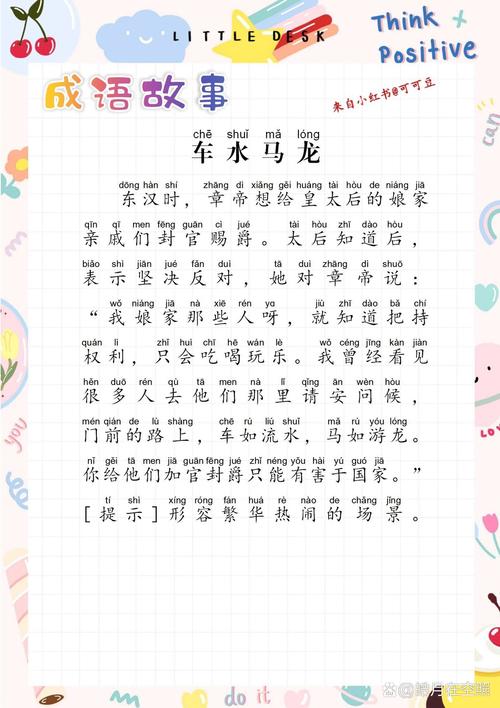 LITTLE DESK
Think +
Positive
成语故事
来自小红书@可可豆
chē shuǐ mǎ lóng
车水马龙
dōng hàn shí zhāng dì xiǎng gěi huáng tài hòu de niáng jiā
东汉时，章帝想给皇太后的娘家
qīn qī men fēng guān cì jué tài hòu zhī dào hòu
亲戚们封官赐爵。太后知道后，
biǎo shì jiān jué fǎn duì tā duì zhāng dì shuō
表示坚决反对，她对章帝说：
wǒ niáng jiā nà xiē rén yɑ jiù zhī dào bǎ chí
“我娘家那些人呀，就知道把持
quán lì zhǐ huì chī hē wán lè wǒ céng jīng kàn jiàn
权利，只会吃喝玩乐。我曾经看见
hěn duō rén qù tā men nà lǐ qǐng ān wèn hòu
很多人去他们那里请安问候，
mén qián de lù shàng chē rú liú shuǐ mǎ rú yóu lóng
门前的路上，车如流水，马如游龙。
nǐ gěi tā men jiā guān fēng jué zhǐ néng yǒu hài yú guó jiā
你给他们加官封爵只能有害于国家。”
tí shì xíng róng fán huá rè nào de chǎng jǐng
[提示]形容繁华热闹的场景。
can
you
do it